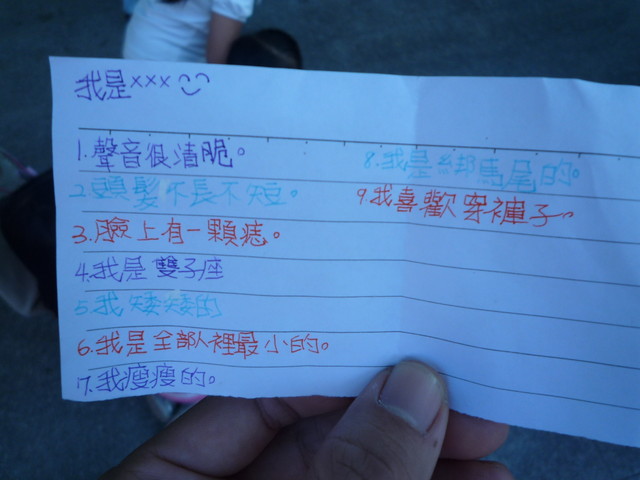 我是×××
1.聲音很清脆。
2.頭髮不長不短。
3.臉上有一顆痣。
4.我是雙子座
5.我矮矮的
6.我是全部人裡最小的。
7.我瘦瘦的。
8.我是綁馬尾的。
9.我喜歡穿褲子~